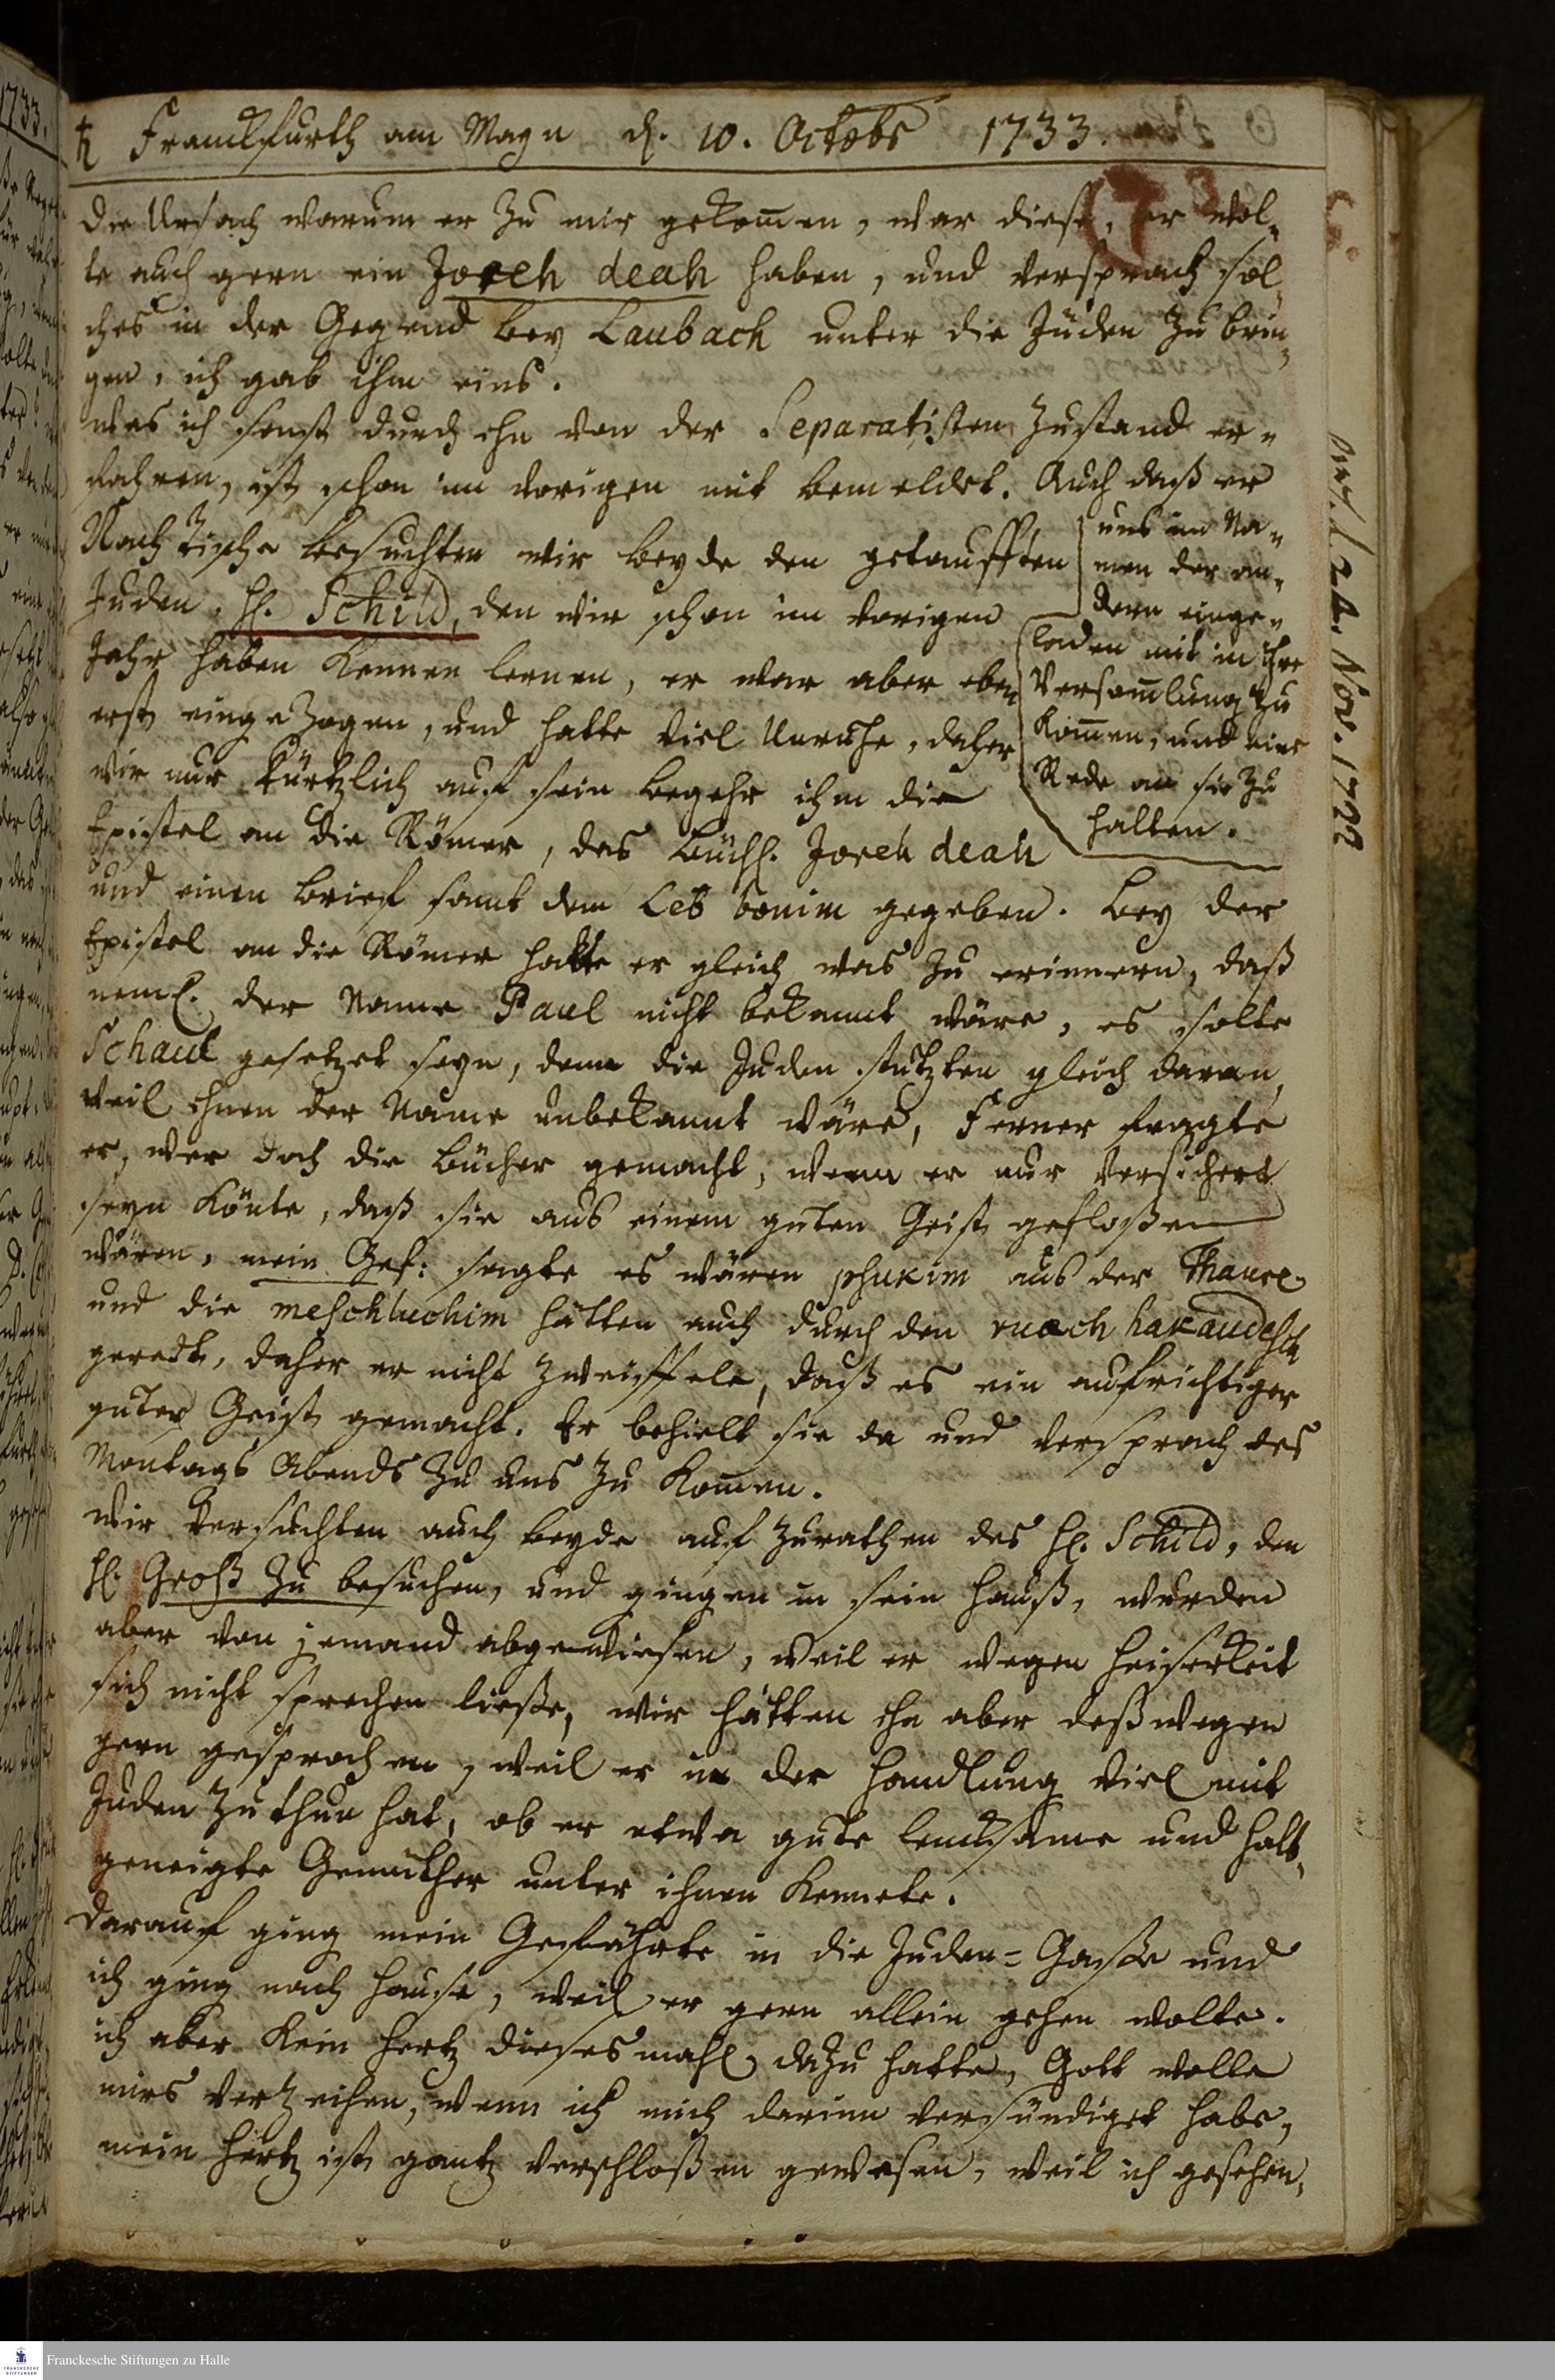 ♄ Franckfurth am Mayn d. 10. Octobr 1733.
(73
Die Ursach warum er zu mir gekom̄en, war diese, er wol-
te auch gern ein Joreh deah haben, und versprach sol-
ches in der Gegend bey Laubach unter die Juden zu brin-
gen, ich gab ihm eins.
was ich sonst durch ihn von der Separatisten Zustand er-
fahren, ist schon im vorigen mit bemeldet. Auch daß er
uns im Na-
men der an-
dern einge-
laden mit in ihre
Versam̄lung zu
kom̄en, und eine
Rede an sie zu
halten.
Nach Tische besuchten wir beyde den getaufften
Juden, H. Schild, den wir schon im vorigen
Jahr haben kennen lernen, er war aber eben
erst eingezogen, und hatte viel Unruhe, daher
wir nur kürtzlich auf sein begehr ihm die
Epistel an die Römer, das büchl. Joreh deah
und einen brief samt dem Leb tonim gegeben. Bey der
Epistel an die Römer hatte er gleich was zu erinnern, daß
neml. der Name Paul nicht bekannt wäre, es solte
Schaul gesetzet seyn, denn die Juden stutzten gleich daran,
weil ihnen der Name unbekannt wäre, Ferner fragte
er, wer doch die bücher gemacht, wenn er nur versichert
seyn könte, daß sie aus einem guten Geist gefloßen
wären, mein Gef: sagte es wären phukim aus der Thaure
und die meschluchim hätten auch durch den ruach hakaudesch
geredt, daher er nicht zweiffele, daß es ein aufrichtiger
guter Geist gemacht. Er behielt sie da und versprach des
Montags Abends zu uns zu kom̄en.
Wir versuchten auch beyde auf Zurathen des H. Schild, den
H. Groß zu besuchen, und gingen in sein Hauß, wurden
aber von jemand abgewiesen, weil er wegen Heiserkeit
sich nicht sprechen ließe, wir hätten ihn aber deßwegen
gern gesprochen, weil er in der Handlung viel mit
Juden zu thun hat, ob er etwa gute lencksame und halb-
geneigte Gemüther unter ihnen kennete.
Darauf ging mein Gefährte in die Juden-Gaße und
ich ging nach Hause, weil er gern allein gehen wolte.
ich aber kein Hertz diesesmahl dazu hatte, Gott wolle
mirs verzeihen, wenn ich mich darinn versündiget habe,
mein Hertz ist gantz verschloßen gewesen, weil ich gesehen,
Franckesche Stiftungen zu Halle